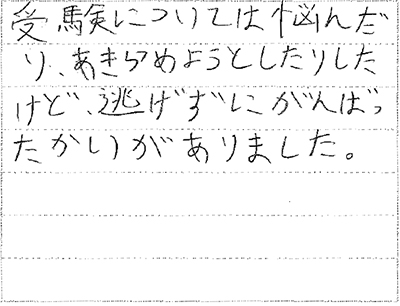 受験については悩んだ
り、あきらめようとしたりした
けど、逃げずにがんばっ
たかいがありました。